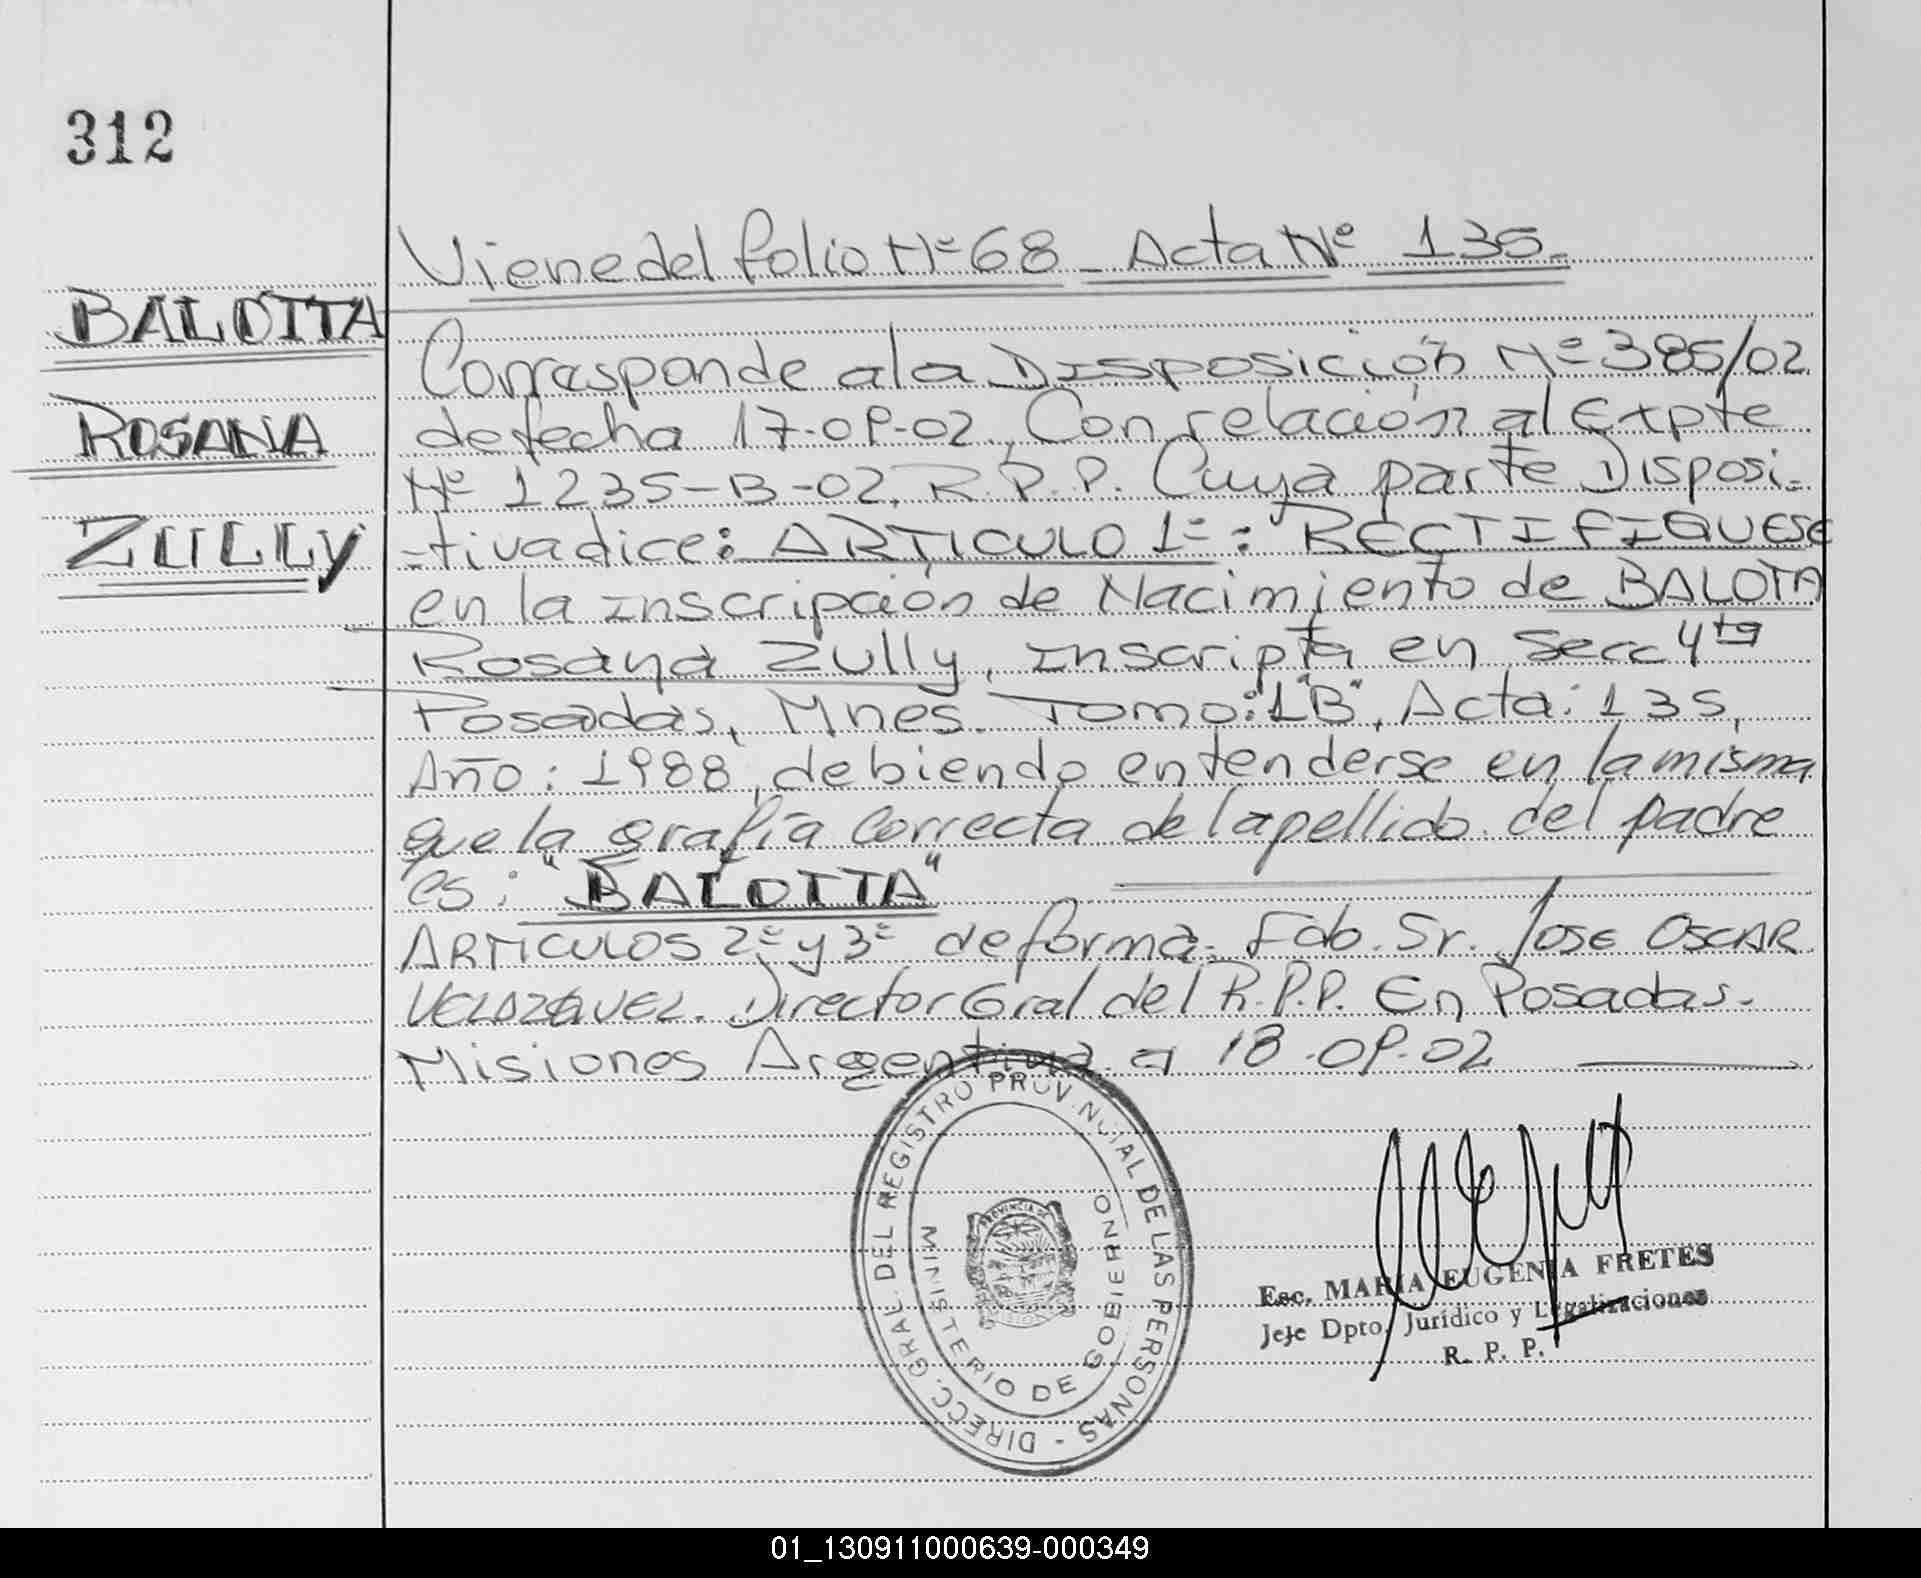 312
Viene del folio Nº 68 - Acta Nº 135.-
BALOTTA
ROSANA
ZULLY
Corresponde a la Disposición Nº 385/02
de fecha 17-09-02, Con relación al Expte
Nº 1235-B-02, R.P.P. Cuya parte Disposi-
-tiva dice: ARTICULO 1º: RECTIFIQUESE
en la inscripción de Nacimiento de BALOTA
Rosana Zully, inscripta en Secc 4ta
Posadas, Mnes. Tomo: 1"B", Acta: 135,
Año: 1988, debiendo entenderse en la misma
que la grafía correcta del apellido del padre
es: "BALOTTA"
ARTICULOS 2º y 3º de forma. Fdo. Sr. JOSE OSCAR
VELAZQUEZ. Director Gral del R.P.P. En Posadas-
Misiones Argentina a 18-09-02
DIRECC. GRAL. DEL REGISTRO PROVINCIAL DE LAS PERSONAS -
MINISTERIO DE GOBIERNO
PROVINCIA DE
MISIONES
Esc. MARIA EUGENIA FRETES
Jefe Dpto. Jurídico y Legalizaciones
R. P. P.
01_130911000639-000349